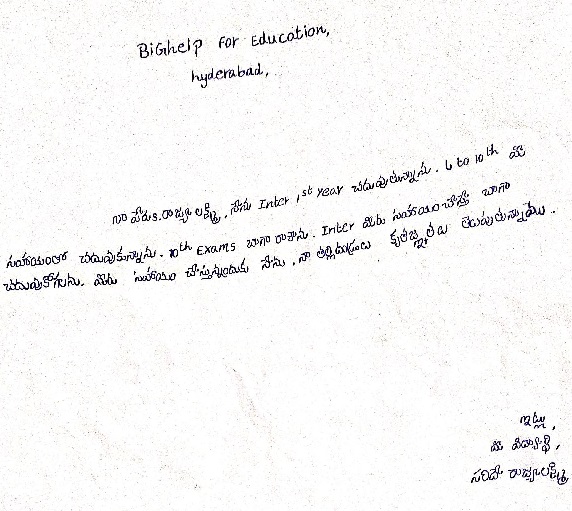 BiGhelp For Education,
hyderabad,
నా పేరు s. రాజ్యలక్ష్మి, నేను Inter 1st Year చదువుతున్నాను. 6 to 10th మీ
సహాయంతో చదువుకున్నాను. 10th Exams బాగా రాశాను. Inter మీరు సహాయం చేస్తే బాగా
చదువుకోగలను. మీరు సహాయం చేస్తున్నందుకు నేను, నా తల్లిదండ్రులు కృతజ్ఞతలు తెలుపుతున్నాము.
ఇట్లు,
మీ విద్యార్థి,
రాజ్యలక్ష్మి